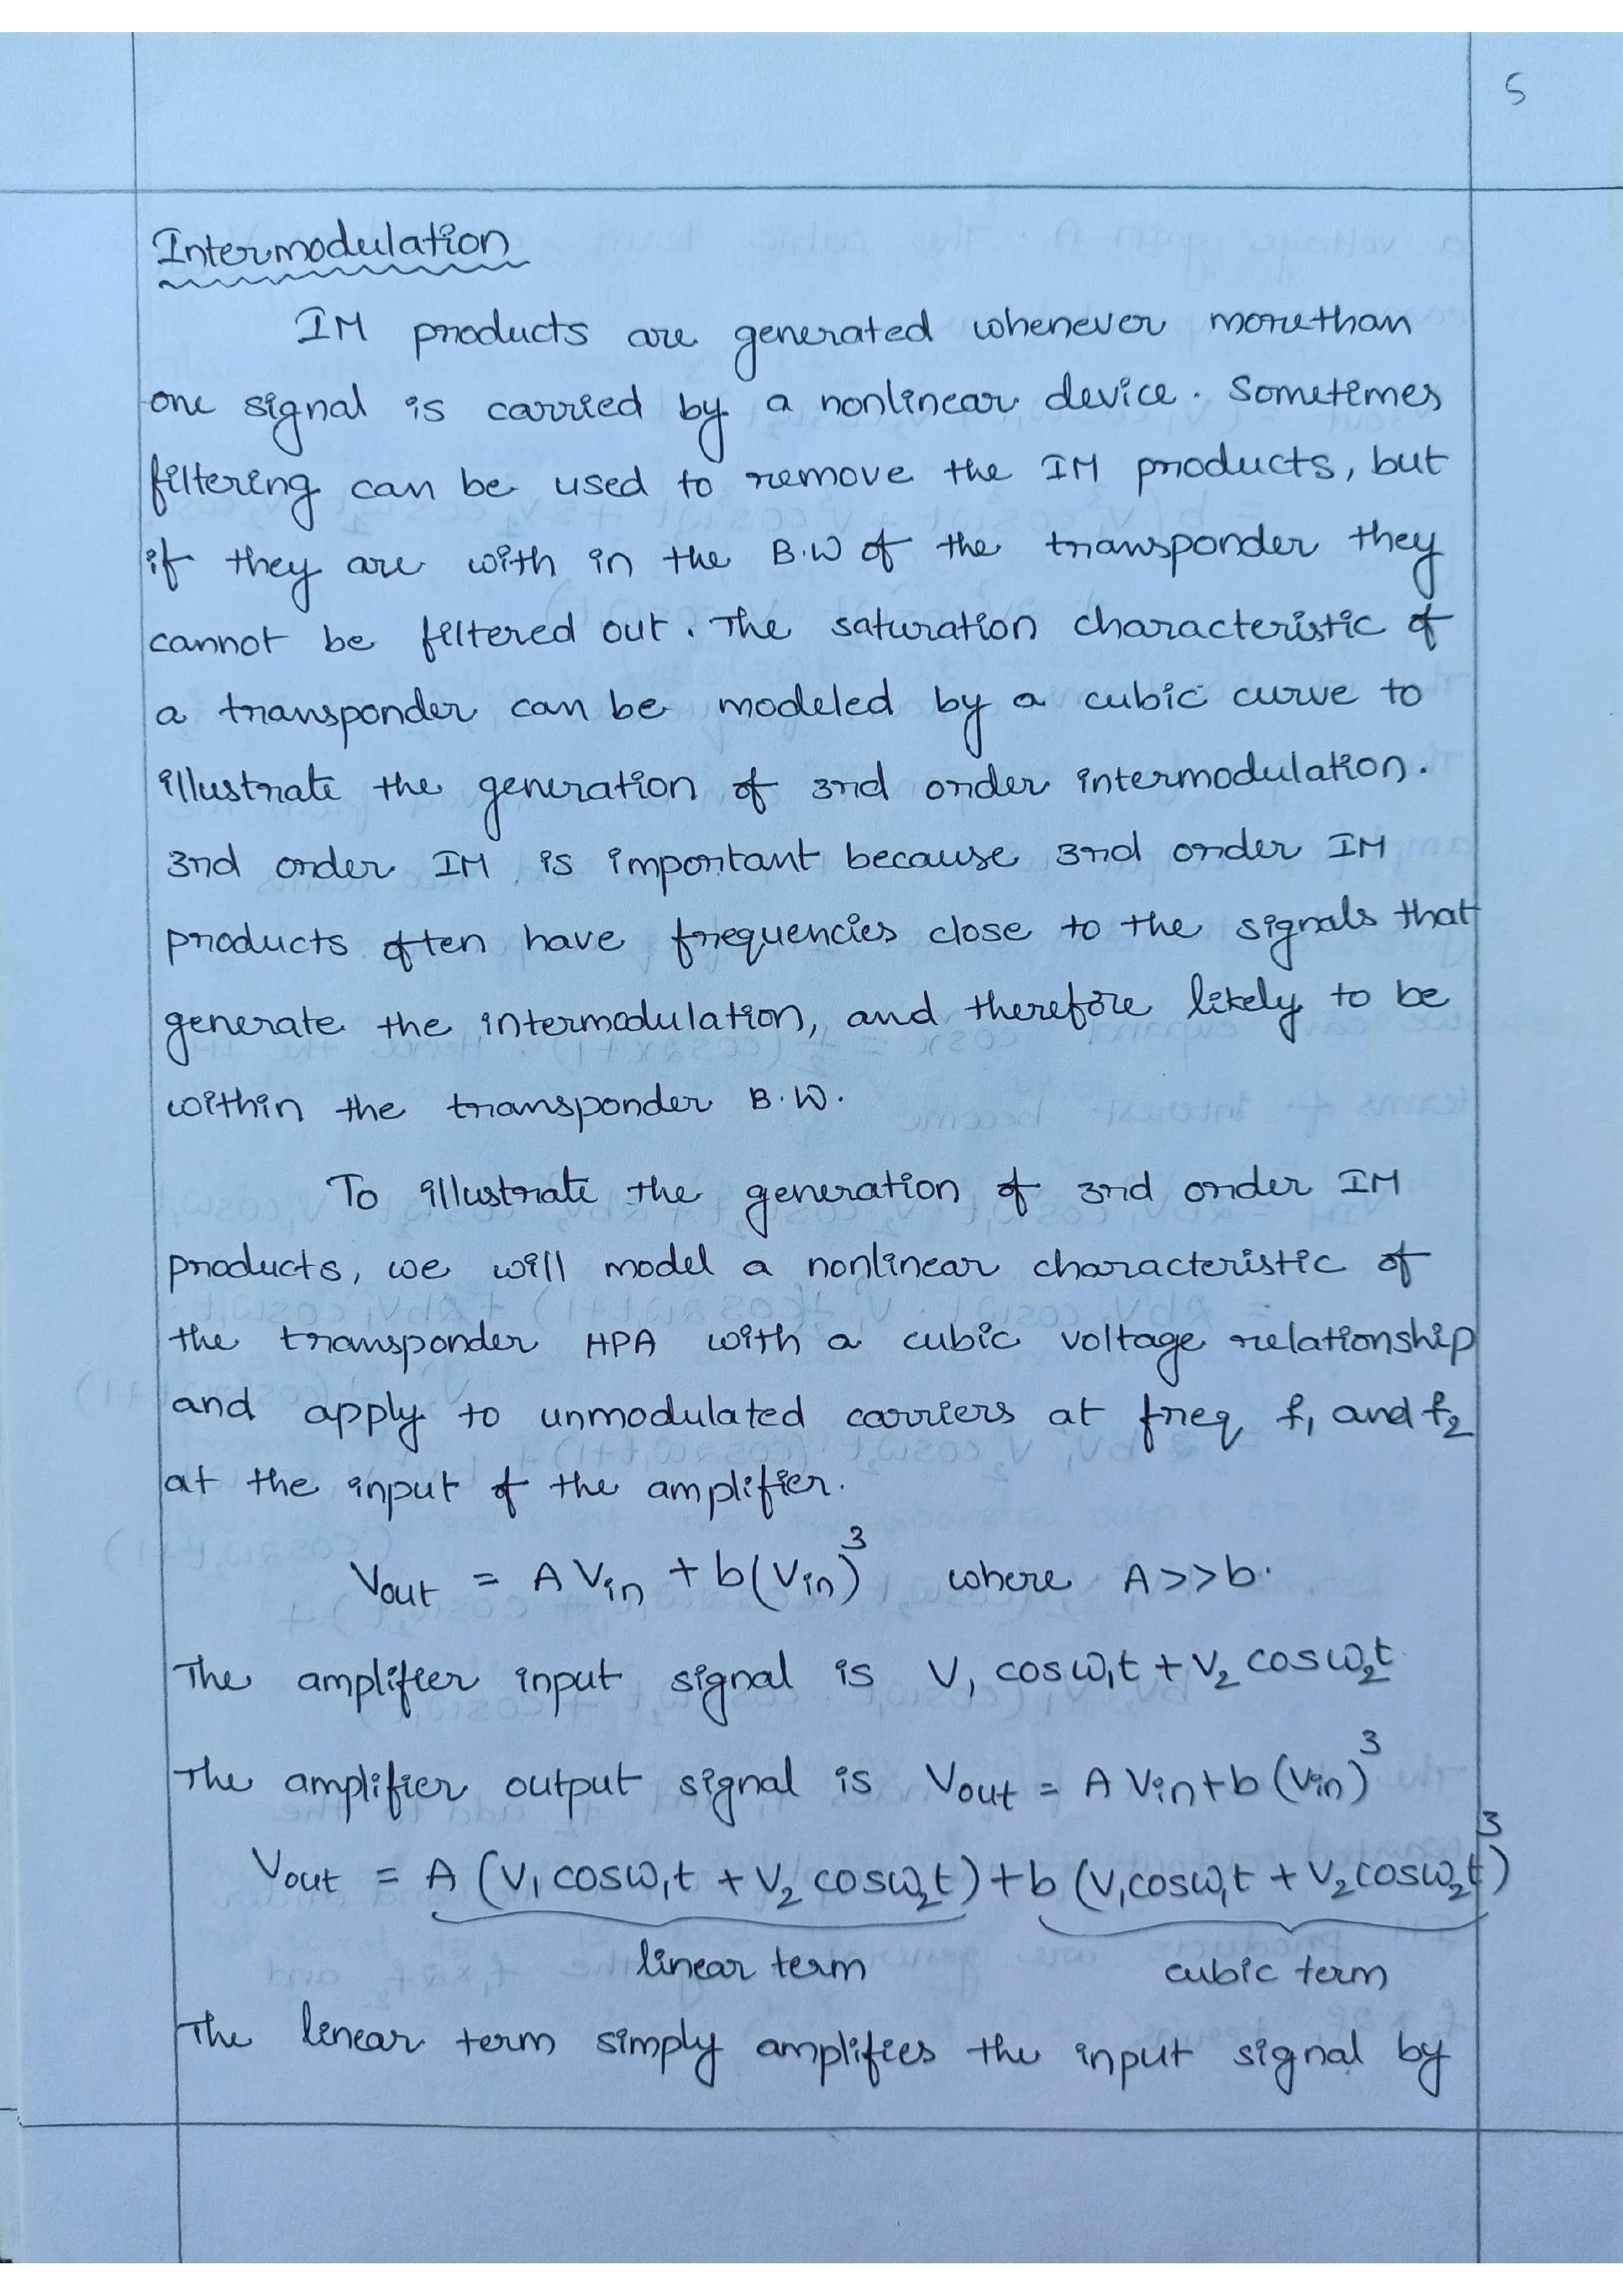 5
Intermodulation
IM products are generated whenever morethan
one signal is carried by a nonlinear device. Sometimes
filtering can be used to remove the IM products, but
if they are with in the B.W of the transponder they
cannot be filtered out. The saturation characteristic of
a transponder can be modeled by a cubic curve to
illustrate the generation of 3rd order intermodulation.
3rd order IM is important because 3rd order IM
products often have frequencies close to the signals that
generate the intermodulation, and therefore likely to be
within the transponder B.W.
To illustrate the generation of 3rd order IM
products, we will model a nonlinear characteristic of
the transponder HPA with a cubic voltage relationship
and apply to unmodulated carriers at freq f₁ and f₂
at the input of the amplifier.
Vout = A Vin + b(Vin)³ where A>>b.
The amplifier input signal is V₁ cosω₁t + V₂ cosω₂t
The amplifier output signal is Vout = A Vin + b (Vin)³
Vout = A (V₁ cosω₁t + V₂ cosω₂t) + b (V₁cosω₁t + V₂cosω₂t)³
linear term cubic term
The linear term simply amplifies the input signal by